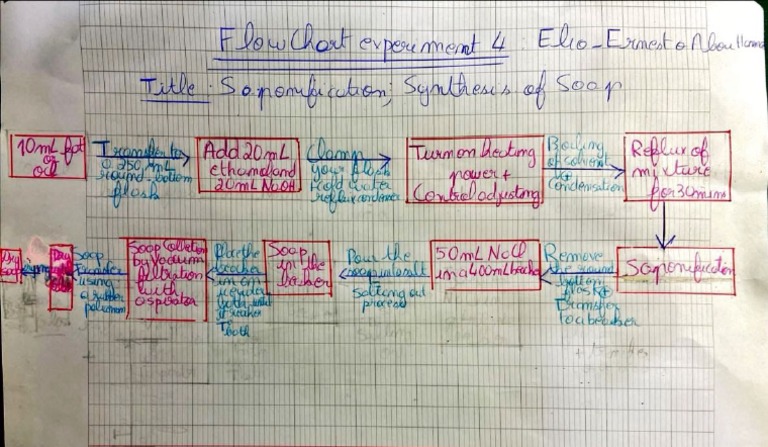 Flow Chart experiment 4 : Elio-Ernesto Abou Hanna
Title: Saponification; Synthesis of Soap
10mL fat
or
oil
Transfer to
a 250mL
round-bottom
flask
Add 20mL
ethanol and
20mL NaOH
Clamp
your flask
cold water
reflux condenser
Turn on heating
power +
Control adjusting
Boiling
of solvent
Condensation
Reflux of
mixture
for 30 mins
Saponification
Remove
the round
bottom
flask +
Transfer
to a beaker
50mL NaCl
in a 400mL beaker
Pour the
soap into salt
Salting out
process
Soap
in the
beaker
Place the
beaker
in an
ice water
bath
Soap Collection
by Vacuum
filtration
with
aspirator
Soap
Transfer
using
a rubber
policeman
Dry